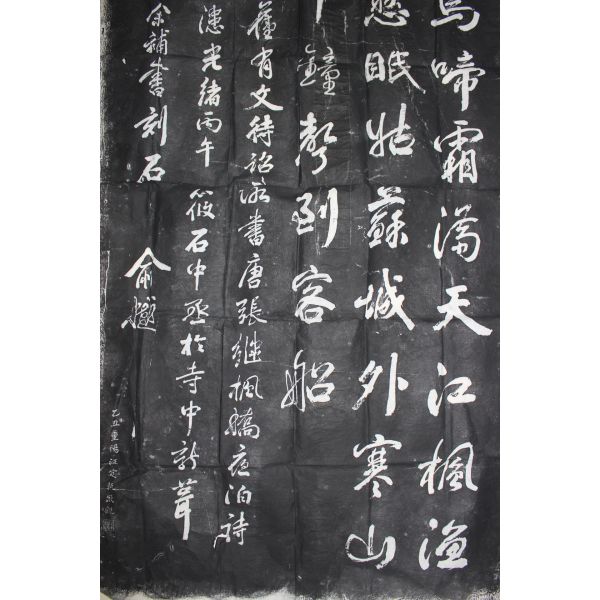 烏啼霜滿天江楓漁
愁眠姑蘇城外寒山
鐘聲到客船
舊有文待詔所書唐張繼楓橋夜泊詩
漶光緒丙午 筱石中丞於寺中新葺
余補書刻石 俞樾
乙丑重陽江